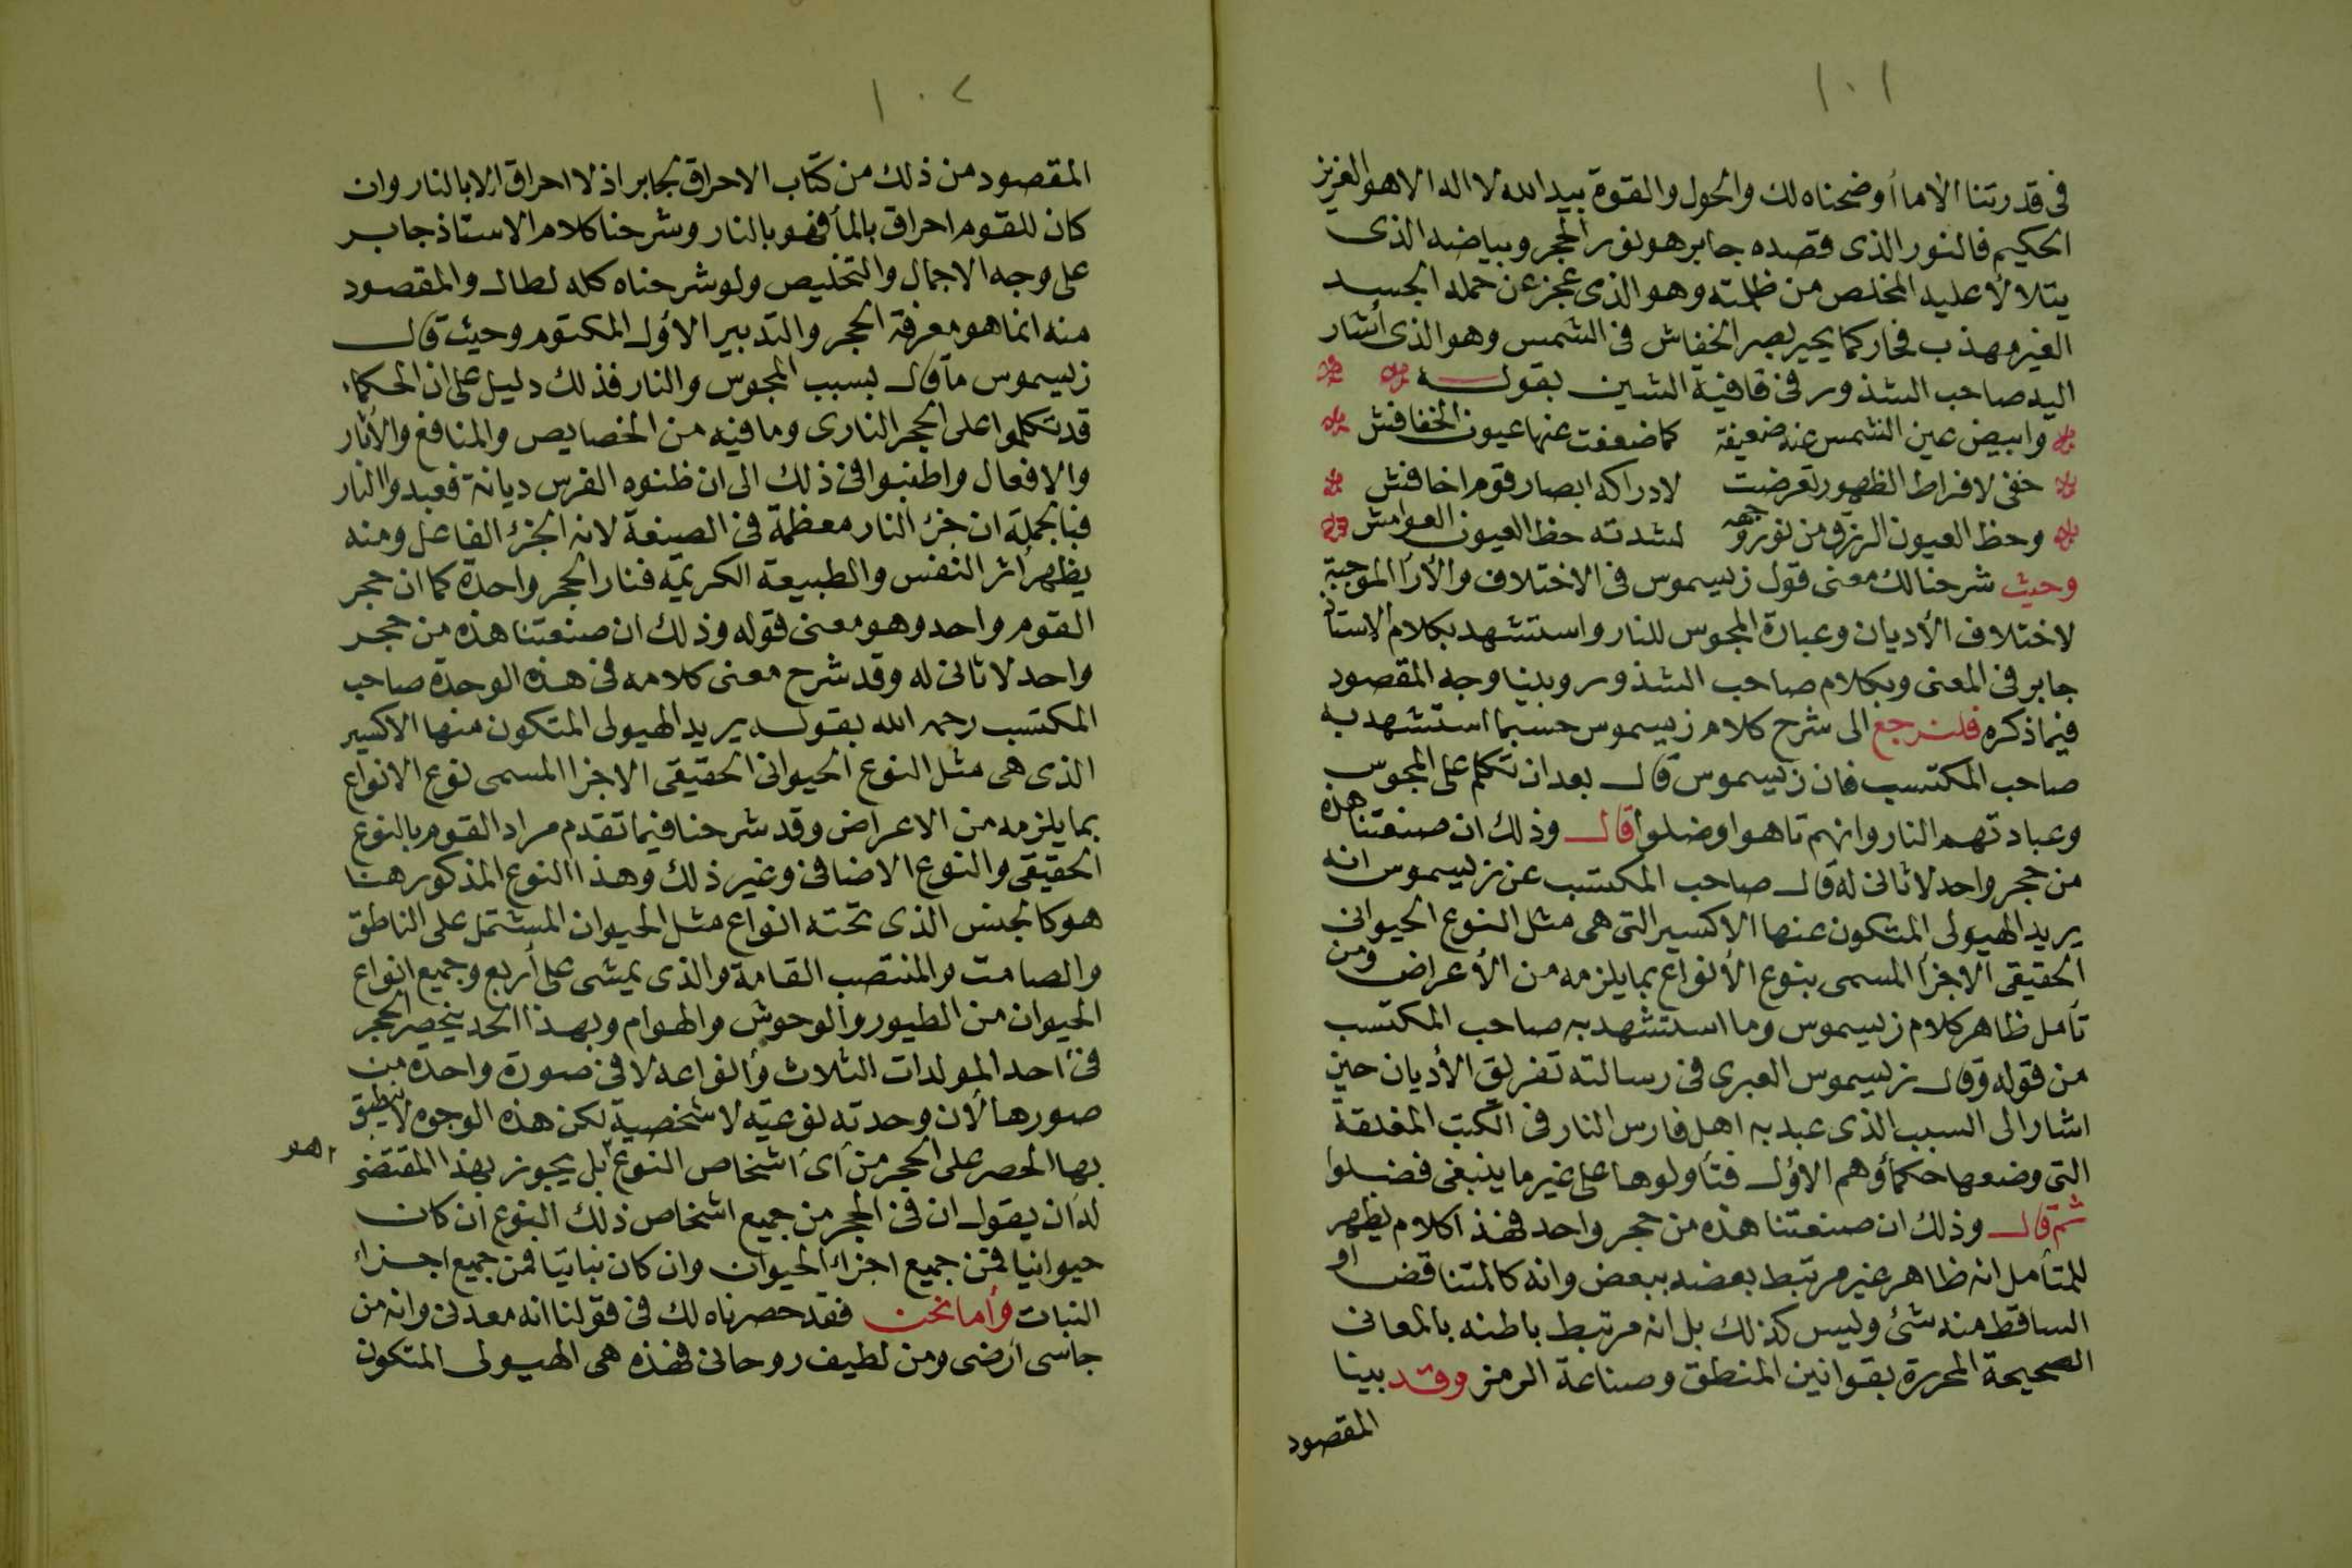 ١٠١
فى قدرتنا الا ما أوضحناه لك والحول والقوة بيد الله لا اله الا هو العزيز
الحكيم فالنور الذى قصده جابر هو نور الحجر وبياضه الذى
يتلالأ عليه المخلص من ظلمته وهو الذى عجز عن حمله الجسد
الغير مهذب فحار كما يحير بصر الخفاش فى الشمس وهو الذى أشار
اليه صاحب الشذور فى قافية الشين بقوله
وابيض عين الشمس عنه ضعيفة كما ضعفت عنها عيون الخفافش
خفى لافراط الظهور تعرضت لادراكه ابصار قوم اخافش
وحظ العيون الزرق من نور وجهه لشدته حظ العيون العوامش
وحيث شرحنا لك معنى قول زيسموس فى الاختلاف والأرأ الموجبة
لاختلاف الأديان وعبادة المجوس للنار واستشهد بكلام الاستاذ
جابر فى المعنى وبكلام صاحب الشذور وبينا وجه المقصود
فيما ذكره فلنرجع الى شرح كلام زيسموس حسبما استشهد به
صاحب المكتسب فان زيسموس قال بعد ان تكلم على المجوس
وعبادتهم النار وانهم تاهوا وضلوا قال وذلك ان صنعتنا هذه
من حجر واحد لا ثانى له قال صاحب المكتسب عن زيسموس انه
يريد الهيولى المتكون عنها الاكسير التى هى مثل النوع الحيوانى
الحقيقى الاجزأ المسمى بنوع الأنواع بما يلزمه من الأعراض ومن
تأمل ظاهر كلام زيسموس وما استشهد به صاحب المكتسب
من قوله وقال زيسموس العبرى فى رسالته تفريق الأديان حين
اشار الى السبب الذى عبد به اهل فارس النار فى الكتب المغلقة
التى وضعها حكمأوهم الاؤل فتأولوها على غير ما ينبغى فضلوا
ثم قال وذلك ان صنعتنا هذه من حجر واحد فهذا كلام يظهر
للمتأمل انه ظاهر غير مرتبط بعضه ببعض وانه كالمتناقض او
الساقط منه شئ وليس كذلك بل انه مرتبط باطنه بالمعانى
الصحيحة المحررة بقوانين المنطق وصناعة الرمز وقد بينا
المقصود
١٠٢
المقصود من ذلك من كتاب الاحراق لجابر اذ لا احراق الا بالنار وان
كان للقوم احراق بالمأ فهو بالنار وشرحنا كلام الاستاذ جابر
على وجه الاجمال والتخليص ولو شرحناه كله لطال والمقصود
منه انما هو معرفة الحجر والتدبير الاؤل المكتوم وحيث قال
زيسموس ما قال بسبب المجوس والنار فذلك دليل على ان الحكماء
قد تكلموا على الحجر النارى وما فيه من الخصايص والمنافع والأثار
والافعال واطنبوا فى ذلك الى ان ظنوه الفرس ديانة فعبدوا النار
فبالجملة ان جزء النار معظمة فى الصنعة لانه الجزء الفاعل ومنه
يظهر أثر النفس والطبيعة الكريمة فنار الحجر واحدة كما ان حجر
القوم واحد وهو معنى قوله وذلك ان صنعتنا هذه من حجر
واحد لا ثانى له وقد شرح معنى كلامه فى هذه الوحدة صاحب
المكتسب رحمه الله بقوله يريد الهيولى المتكون منها الاكسير
الذى هى مثل النوع الحيوانى الحقيقى الاجزا المسمى نوع الانواع
بما يلزمه من الاعراض وقد شرحنا فيما تقدم مراد القوم بالنوع
الحقيقى والنوع الاضافى وغير ذلك وهذا النوع المذكور هنا
هو كالجنس الذى تحته انواع مثل الحيوان المشتمل على الناطق
والصامت والمنتصب القامة والذى يمشى على أربع وجميع انواع
الحيوان من الطيور والوحوش والهوام وبهذا الحد ينحصر الحجر
فى أحد المولدات الثلاث وأنواعه لا فى صورة واحدة من
صورها لأن وحدته نوعيه لا شخصية لكن هذه الوجوه لا ينطبق
بها الحصر على الحجر من أى أشخاص النوع بل يجوز بهذا المقتضى
له أن يقول ان فى الحجر من جميع اشخاص ذلك النوع ان كان
حيوانيا فمن جميع اجزاء الحيوان وان كان نباتيا فمن جميع اجزاء
النبات وأما نحن فقد حصرناه لك فى قولنا انه معدنى وانه من
جاسى أرضى ومن لطيف روحانى فهذه هى الهيولى المتكون